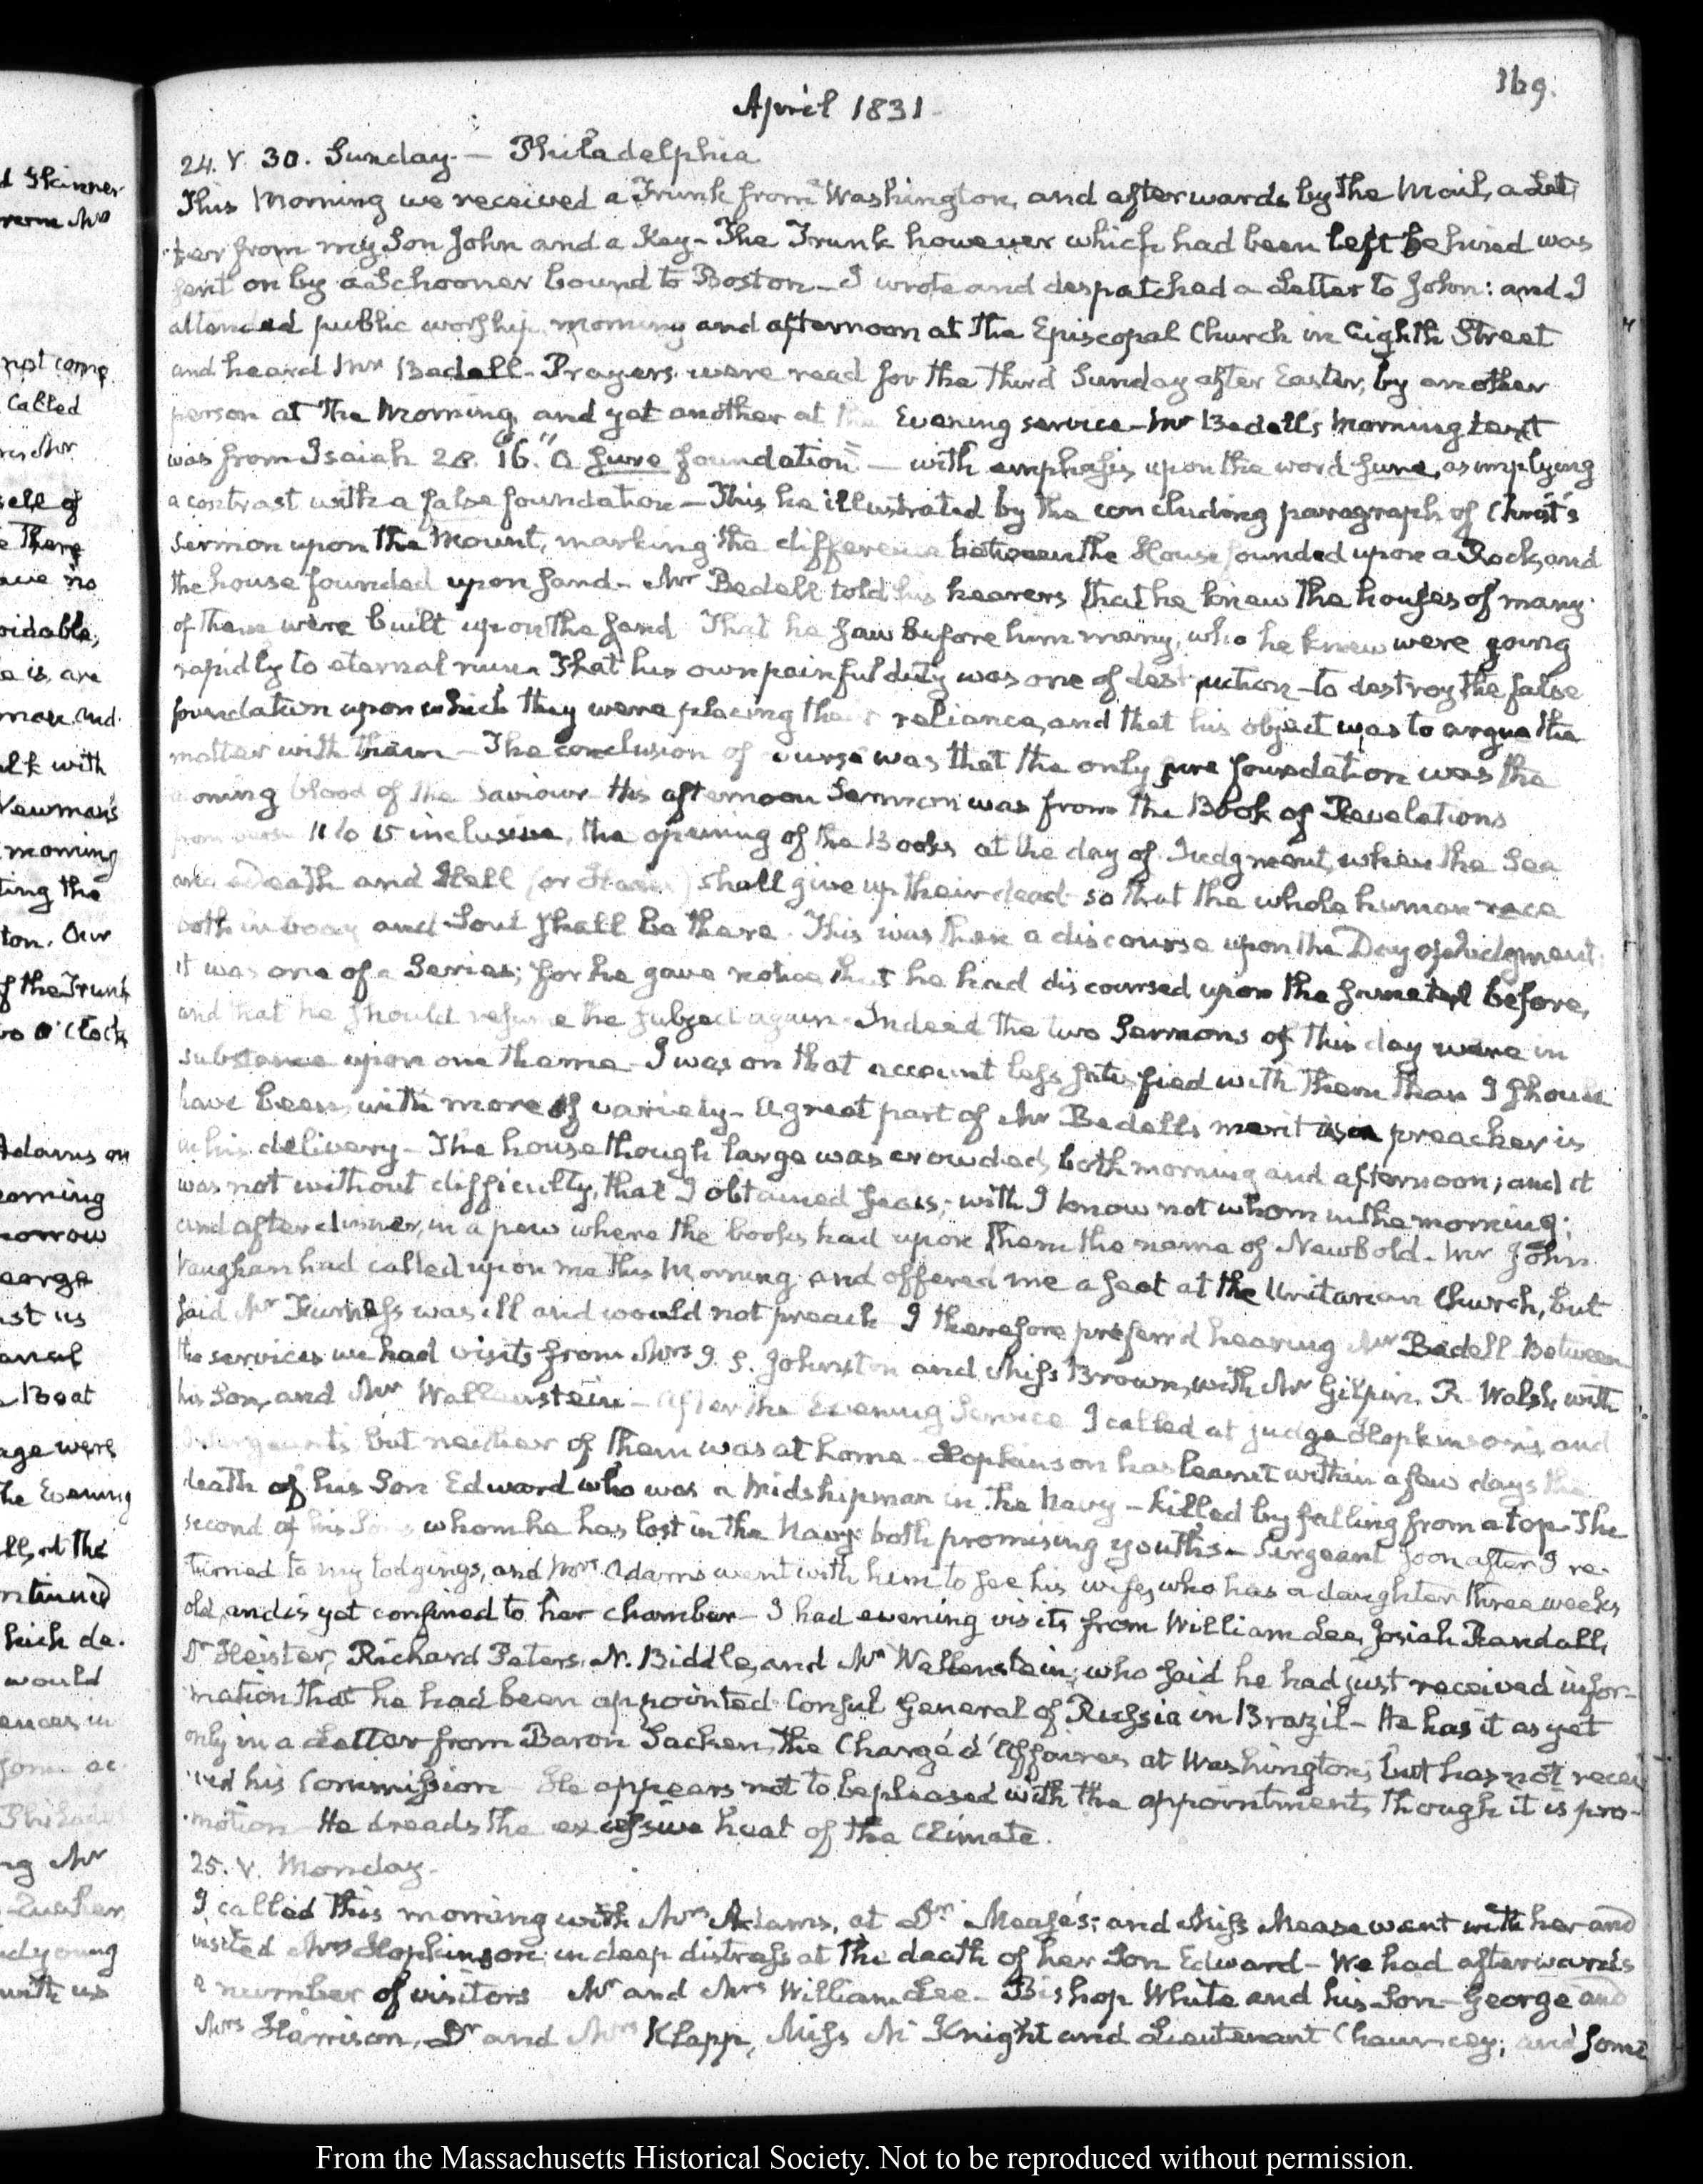 d Skinner
Mrs
not come
Called
Mr
self of
There
no
oidable,
is, are
man. and
with
Newman's
morning
ting the
ton. Our
f the Trunk
o'Clock
Adams on
morrow
eorge
us
Boat
age were
he Evening
ll, at the
ntinued
hich de-
would
in
ng Mr
young
with us
169.
April 1831.
24. V. 30. Sunday. — Philadelphia
This Morning we received a Trunk from Washington, and afterwards by the Mail, a Let
ter from my Son John and a Key - The Trunk however which had been left behind was
sent on by a Schooner bound to Boston - I wrote and despatched a Letter to John: and I
attended public worship, morning and afternoon at the Episcopal Church in Eighth Street
and heard Mr Bedell - Prayers were read for the third Sunday after Easter, by another
person at the Morning, and yet another at the Evening service - Mr Bedell's Morning text
was from Isaiah 28. 16. "a sure foundation" — with emphasis upon the word sure, as implying
a contrast with a false foundation — This he illustrated by the concluding paragraph of Christ's
Sermon upon the Mount, marking the difference between the House founded upon a Rock, and
the house founded upon sand - Mr Bedell told his hearers that he knew the houses of many
of them were built upon the sand That he saw before him many, who he knew were going
rapidly to eternal ruin. That his own painful duty was one of destruction - to destroy the false
foundation upon which they were placing their reliance, and that his object was to argue the
matter with them - The conclusion of course was that the only sure foundation was the
atoning blood of the Saviour - His afternoon Sermon was from the Book of Revelations
from verse 11 to 15 inclusive, the opening of the Books at the day of Judgment, when the Sea
and Death and Hell (or ) shall give up their dead so that the whole human race
both in body and Soul shall be there. This was then a discourse upon the Day of Judgment;
it was one of a Series; for he gave notice that he had discoursed upon the same text before,
and that he should resume the subject again. Indeed the two Sermons of this day were in
substance upon one theme - I was on that account less satisfied with them than I should
have been, with more of variety - A great part of Mr Bedell's merit as a preacher is
in his delivery - The house though large was crowded, both morning and afternoon; and it
was not without difficulty, that I obtained seats; with I know not whom in the morning;
and after dinner, in a pew where the books had upon them the name of Newbold - Mr John
Vaughan had called upon me this Morning and offered me a seat at the Unitarian Church, but
said Mr Furness was ill and would not preach I therefore preferr'd hearing Mr Bedell - Between
the services we had visits from Mrs J. S. Johnston and Miss Brown, with Mr Gilpin, R. Walsh with
his Son, and Mr Wallenstein - After the Evening Service I called at judge Hopkinson's, and
Sergeant's but neither of them was at home - Hopkinson has learnt within a few days the
death of his Son Edward who was a Midshipman in the Navy - killed by falling from a top - The
second of his Sons whom he has lost in the Navy: both promising youths - Sergeant soon after I re-
turned to my lodgings, and Mrs Adams went with him to see his wife, who has a daughter three weeks
old, and is yet confined to her chamber - I had evening visits from William Lee, Josiah Randall,
Dr Heister, Richard Peters, N. Biddle, and Mr Wallenstein; who said he had just received infor-
mation that he had been appointed Consul General of Russia in Brazil - He has it as yet
only in a Letter from Baron Sacken, the Chargé d'Affaires at Washington; but has not recei
ved his Commission He appears not to be pleased with the appointment, though it is pro-
motion He dreads the excessive heat of the Climate.
25. V. Monday.
I called this morning with Mrs Adams, at Dr Mease's; and Miss Mease went with her and
visited Mrs Hopkinson in deep distress at the death of her Son Edward - We had afterwards
a number of visitors Mr and Mrs William Lee - Bishop White and his Son - George and
Mrs Harrison, Dr and Mrs Klapp, Miss Mc Knight and Lieutenant Chauncey; and some
From the Massachusetts Historical Society. Not to be reproduced without permission.